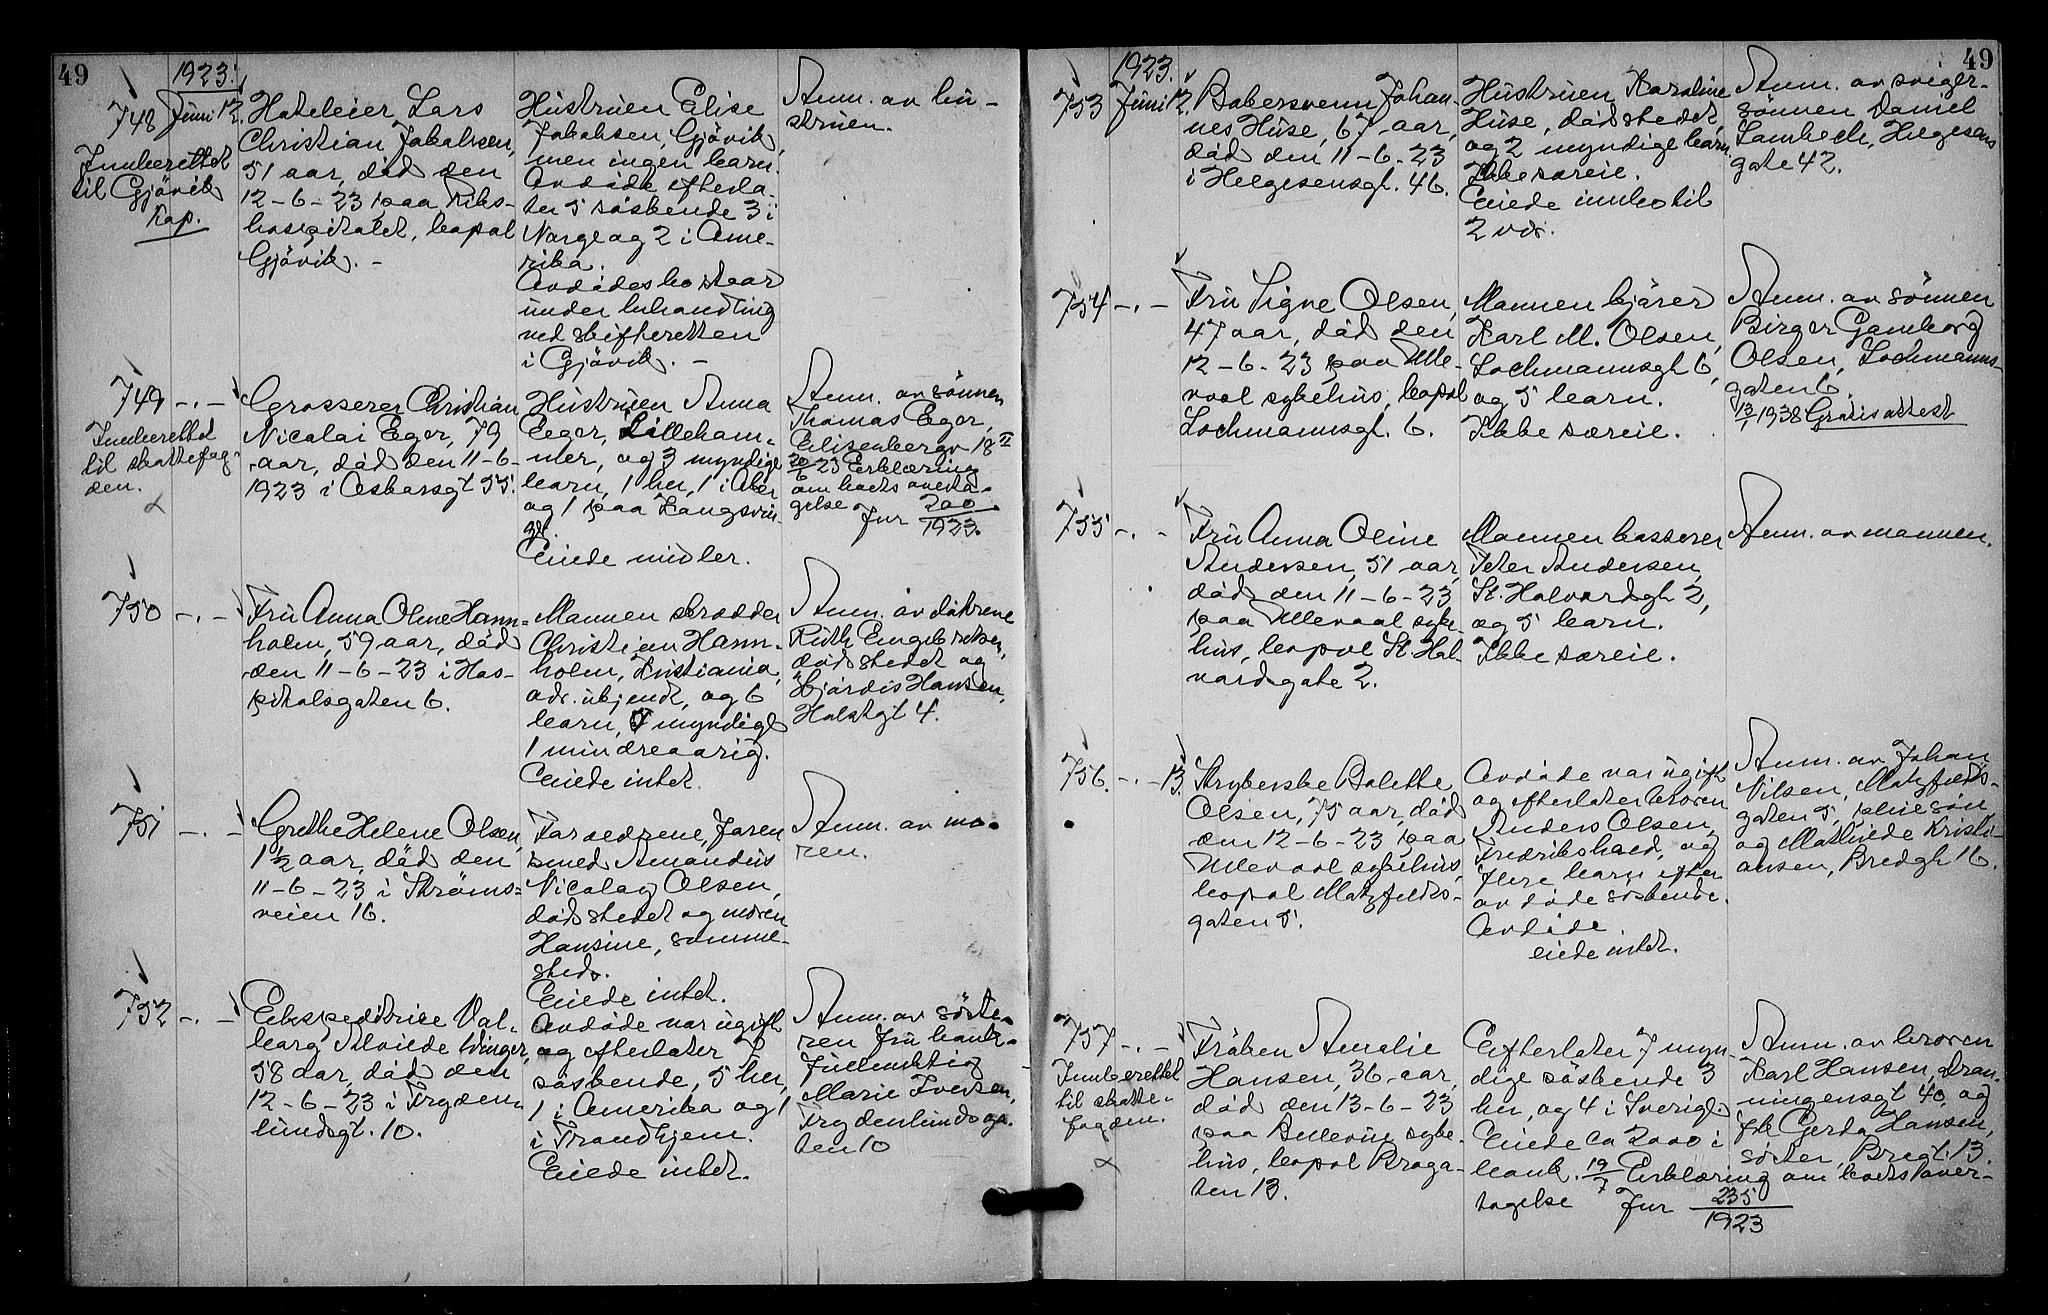 49
1923.
748 Juni 12.
Innberettet
til Gjövik
kap.
Hoteleier Lars
Christian Jakobsen,
51 aar, död den
12-6-23 paa Riks-
hospitalet, bopæl
Gjövik. -
Hustruen Elise
Jakobsen, Gjövik,
men ingen barn.
Avdöde efterla-
ter 5 söskende 3 i
Norge og 2 i Ame-
rika.
Avdödes bo staar
under behandling
ved skifteretten
i Gjövik. -
Anm. av hu-
struen.
749 -.-
Innberettet
til skattefog-
den.
Grosserer Christian
Nicolai Eger, 79
aar, död den 11-6-
1923 i Oskarsgt 55.
Hustruen Anna
Eger, Lilleham-
mer, og 3 myndige
barn, 1 her, 1 i Aker
og 1 paa Kongsvin-
ger.
Eiede midler.
Anm. av sönnen
Thomas Eger,
Elisenbergv 18 II
20/6 23 Erklæring
om boets overta-
gelse
Jnr 200/1923.
750 -.-
Fru Anna Oline Hann-
holm, 59 aar, död
den 11-6-23 i Hos-
pitalsgaten 6.
Mannen skrædder
Christian Hann-
holm, Kristiania,
adr. ukjendt, og 6
barn, 5 myndige
1 mindreaarig.
Eiede intet.
Anm. av döttrene
Ruth Engebretsen,
dödsstedet og
Hjördis Hansen,
Holstgt 4.
751 -.-
Grethe Helene Olsen,
1 1/2 aar, död den
11-6-23 i Ströms-
veien 16.
Forældrene, Faren
smed Amandus
Nicolay Olsen,
dödsstedet og moren
Hansine, samme-
steds.
Eiede intet.
Anm. av mo-
ren.
752 -.-
Ekspeditrice Val-
borg Alvilde Winger,
58 aar, död den
12-6-23 i Fryden-
lundsgt. 10.
Avdöde var ugift
og efterlater 7
söskende, 5 her,
1 i Amerika og 1
i Trondhjem.
Eiede intet.
Anm. av söste-
ren fru bank-
fuldmektig
Marie Iversen,
Frydenlundsga-
ten 10
49
1923.
753 Juni 12.
Bokersvenn Johan-
nes Huse, 67 aar,
död den 11-6-23
i Helgesensgt. 46.
Hustruen Karoline
Huse, dödsstedet,
og 2 myndige barn.
Ikke særeie.
Eiede innbo til
2 vær.
Anm. av sviger-
sönnen Daniel
Lambech, Helgesens
gate 42.
754 -.-
Fru Signe Olsen,
47 aar, död den
12-6-23 paa Ulle-
vaal sykehus, bopæl
Lochmannsgt. 6.
Mannen kjörer
Karl M. Olsen,
Lochmannsgt 6,
og 5 barn.
Ikke særeie.
Anm. av sönnen
Birger Gamborg
Olsen, Lochmanns-
gaten 6.
13/1 1938 Gratis attest
755 -.-
Fru Anna Oline
Andersen, 51 aar,
död den 11-6-23
paa Ullevaal syke-
hus, bopæl St. Hal-
vardsgate 2.
Mannen kasserer
Peter Andersen,
St. Halvardsgt 2,
og 5 barn.
Ikke særeie.
Anm. av mannen.
756. -.- 13.
Strykerske Bolette
Olsen, 75 aar, död
den 12-6-23 paa
Ullevaal sykehus,
bopæl Motzfeldts-
gaten 5.
Avdöde var ugift
og efterlater broren
Anders Olsen,
Fredrikshald, og
flere barn efter
avdöde söskende.
Avdöde
eiede intet.
Anm. av Johan
Nilsen, Motzfeldts-
gaten 5, pleiesön
og Mathilde Kristi-
ansen, Bredgt 16.
757 -.-
Innberettet
til skatte-
fogden.
Fröken Amalie
Hansen, 36 aar,
död den 13-6-23
paa Bellevue syke-
hus, bopæl Broga-
ten 13.
Efterlater 7 myn-
dige söskende 3
her, og 4 i Sverige.
Eiede ca 2000 i
bank. 19/7 Erklæring om boets over-
tagelse Jnr 235/1923
Anm. av broren
Karl Hansen, Dron-
ningensgt 40, og
frk Gerda Hansen,
söster, Brogt. 13.